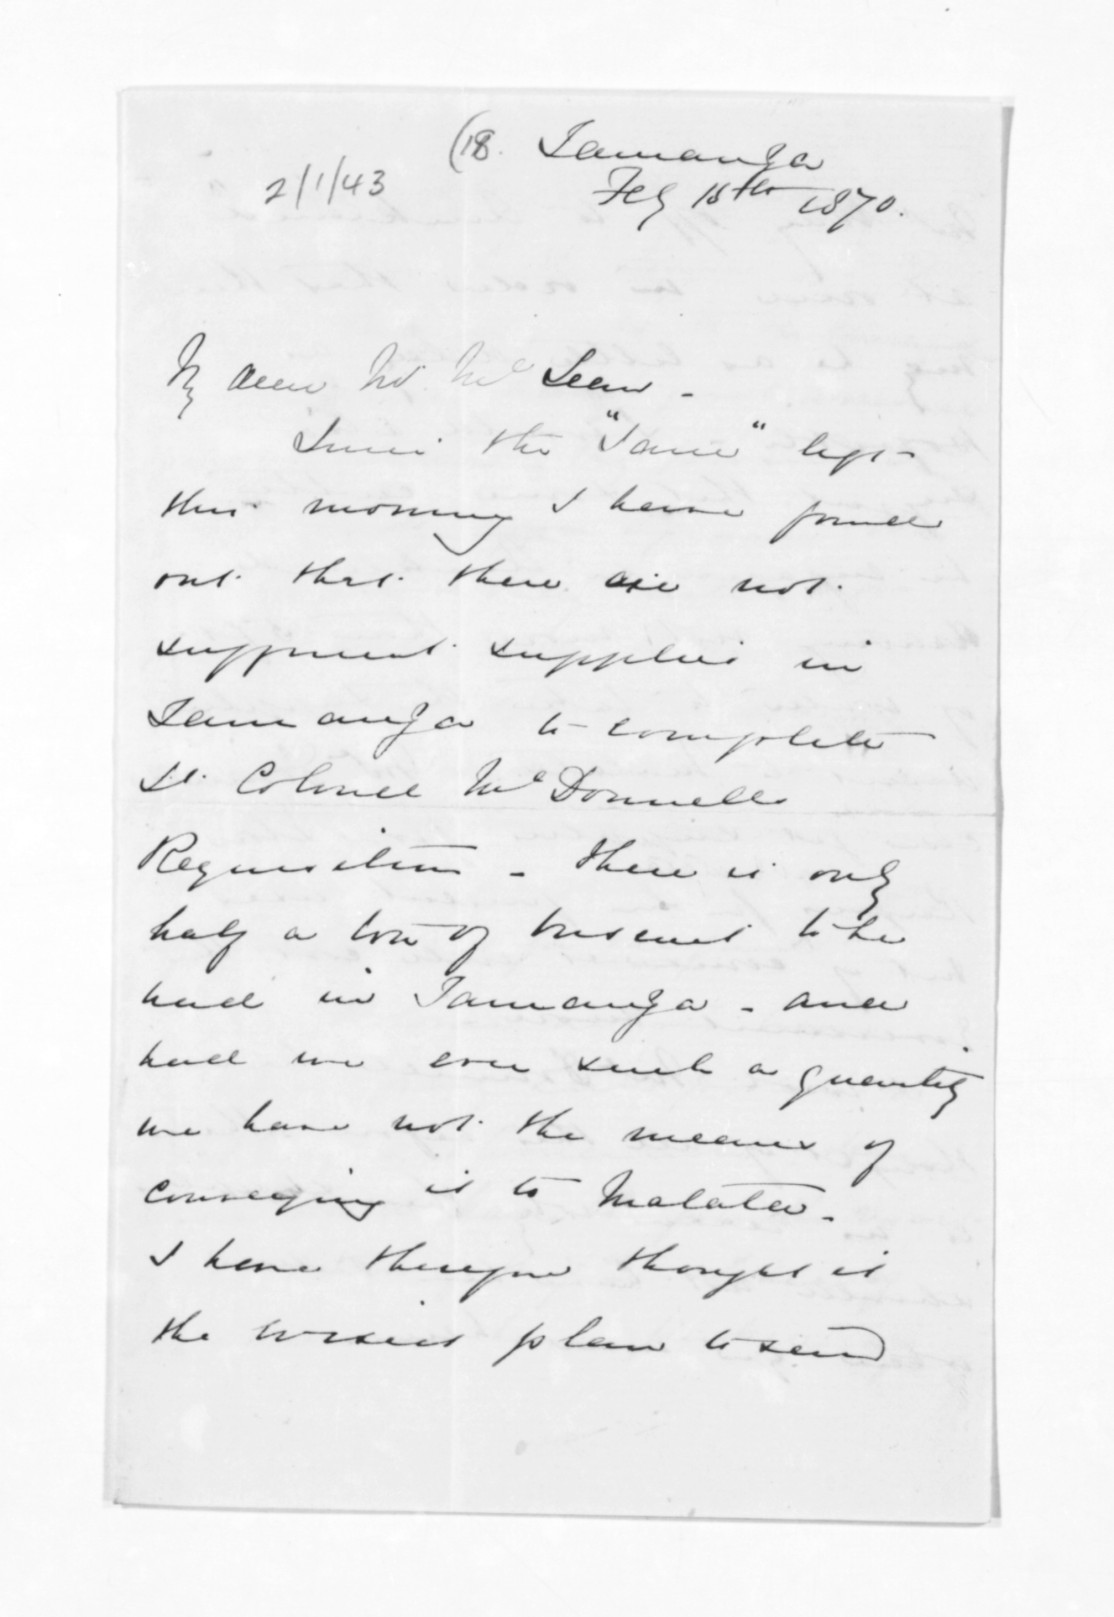 (18. Tauranga
2/1/43
Feby 18th 1870.
My dear Mr. McLean -
Since the "Jane" left
this morning I have found
out that there are not
sufficient supplies in
Tauranga to complete
Lt. Colonel McDonnells
Requisition - there is only
half a ton of biscuit to be
had in Tauranga - and
had we even such a quantity
we have not the means of
conveying it to Matata -
I have therefore thought it
the wisest plan to send